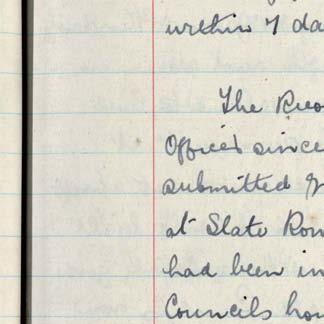 within 7 da
The Reco
Officer's since
submitted
at Slate Row
had been in
Councils hou